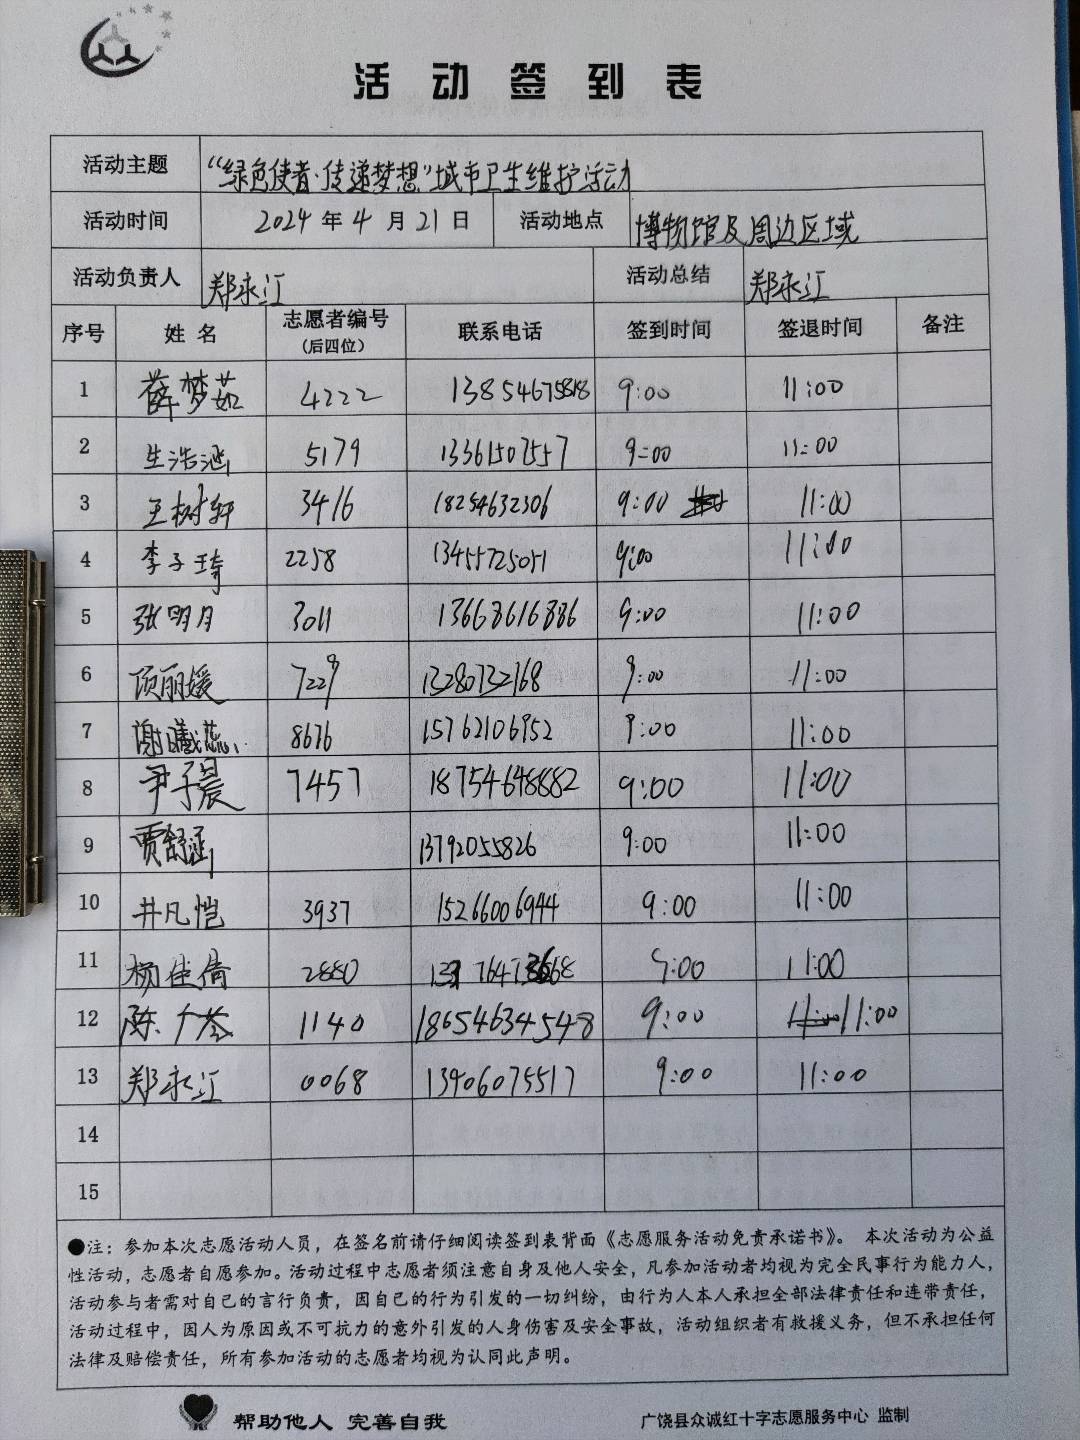 活动签到表
活动主题 “绿色使者·传递梦想”城市卫生维护活动
活动时间 2024年4月21日 活动地点 博物馆及周边区域
活动负责人 郑永江 活动总结 郑永江
序号 姓名 志愿者编号（后四位） 联系电话 签到时间 签退时间 备注
1 薛梦茹 4222 13854675818 9:00 11:00
2 生浩涵 5179 13361507557 9:00 11:00
3 王树轩 3416 18254632306 9:00 11:00
4 李子琦 2258 13455725051 9:00 11:00
5 张明月 3011 13668616886 9:00 11:00
6 顾丽媛 7229 13280732168 9:00 11:00
7 谢曦蕊 8676 15762106952 9:00 11:00
8 尹子晨 7457 18754648882 9:00 11:00
9 贾舒涵 13792055826 9:00 11:00
10 井凡恺 3937 15266006944 9:00 11:00
11 杨佳倩 2880 9:00 11:00
12 陈 1140 18654634548 9:00 11:00
13 郑永江 0068 13906075517 9:00 11:00
14
15
●注：参加本次志愿活动人员，在签名前请仔细阅读签到表背面《志愿服务活动免责承诺书》。 本次活动为公益
性活动，志愿者自愿参加。活动过程中志愿者须注意自身及他人安全，凡参加活动者均视为完全民事行为能力人，
活动参与者需对自己的言行负责，因自己的行为引发的一切纠纷，由行为人本人承担全部法律责任和连带责任，
活动过程中，因人为原因或不可抗力的意外引发的人身伤害及安全事故，活动组织者有救援义务，但不承担任何
法律及赔偿责任，所有参加活动的志愿者均视为认同此声明。
帮助他人 完善自我 广饶县众诚红十字志愿服务中心 监制